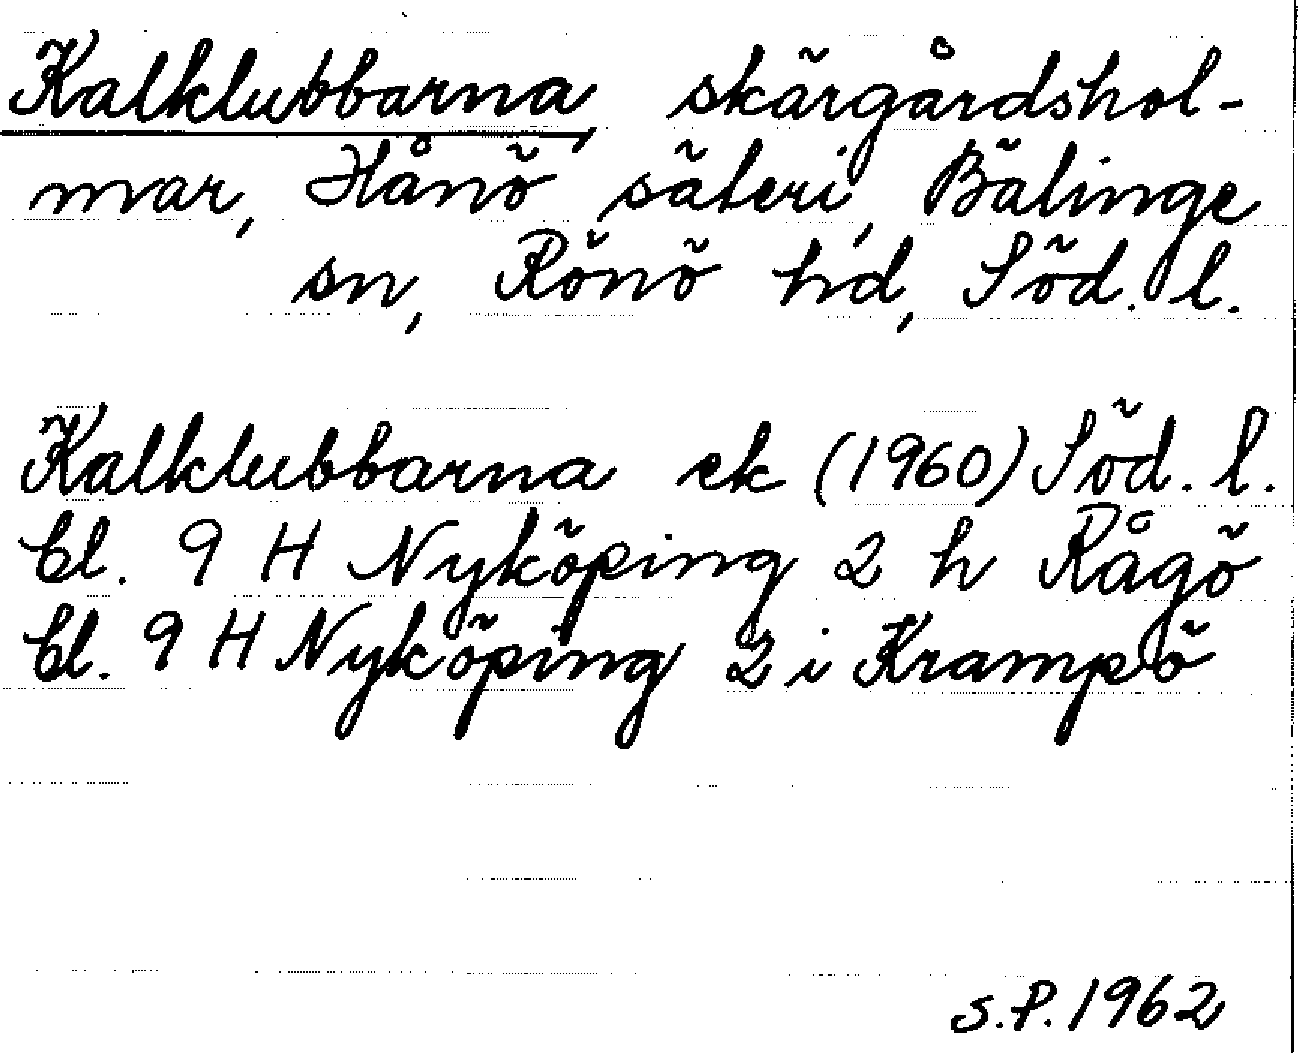 Kalklubbarna, skärgårdshol-
mar, Hånö säteri, Bälinge
sn, Rönö hd, Söd. l.
Kalklubbarna ek (1960) Söd. l.
Bl. 9 H Nyköping 2 h Rågö
Bl. 9 H Nyköping 2 i Krampö
S.P. 1962